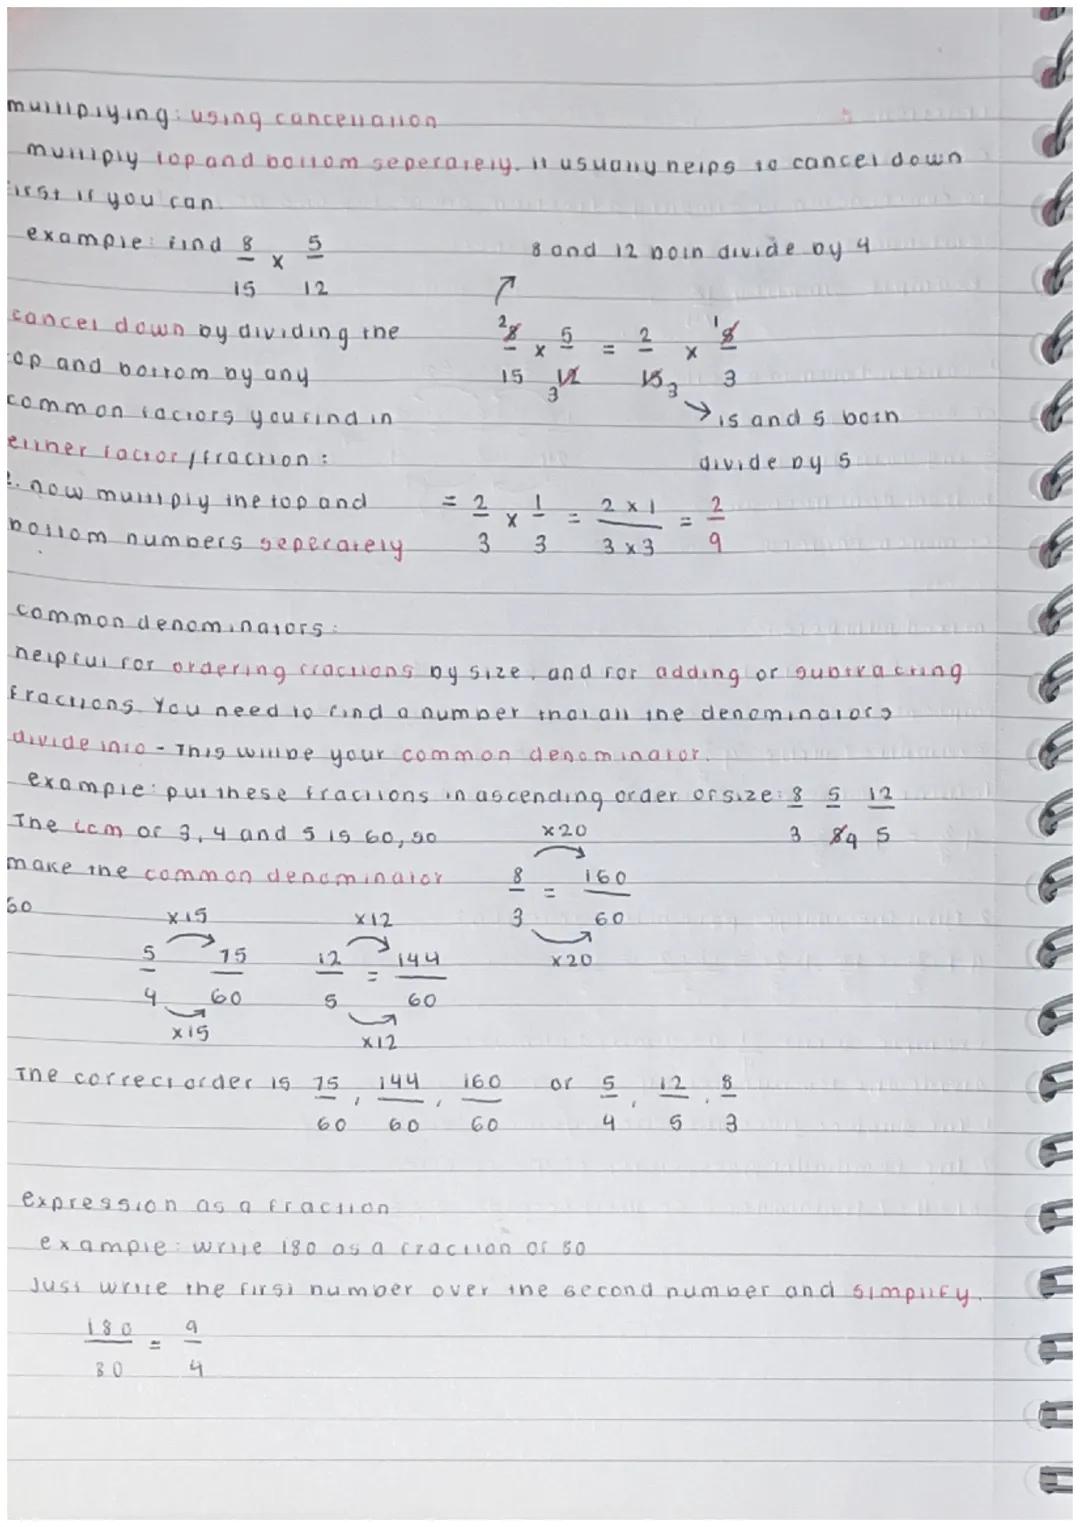 multiplying: using cancellation
multiply top and bottom seperately. it usually helps to cancel down
first if you can.
example: find 8/15 × 5/12
8 and 12 both divide by 4
cancel down by dividing the
top and bottom by any
common factors you find in
either factor/fraction:
²8/15 × 5/12₃ = 2/15₃ × ¹5/3
15 and 5 both
divide by 5
2. now multiply the top and
bottom numbers seperately
= 2/3 × 1/3 = 2 × 1/3 × 3 = 2/9
common denominators:
helpful for ordering fractions by size, and for adding or subtracting
fractions. You need to find a number that all the denominators
divide into - This will be your common denominator.
example: put these fractions in ascending order of size: 8/3 5/4 12/5
The lcm of 3, 4 and 5 is 60, so
make the common denominator
60
×20
8/3 = 160/60
×20
×15
5/4 75/60
×15
×12
12/5 = 144/60
×12
The correct order is 75/60, 144/60, 160/60 or 5/4, 12/5, 8/3
expression as a fraction
example: write 180 as a fraction of 80
Just write the first number over the second number and simplify.
180/80 = 9/4